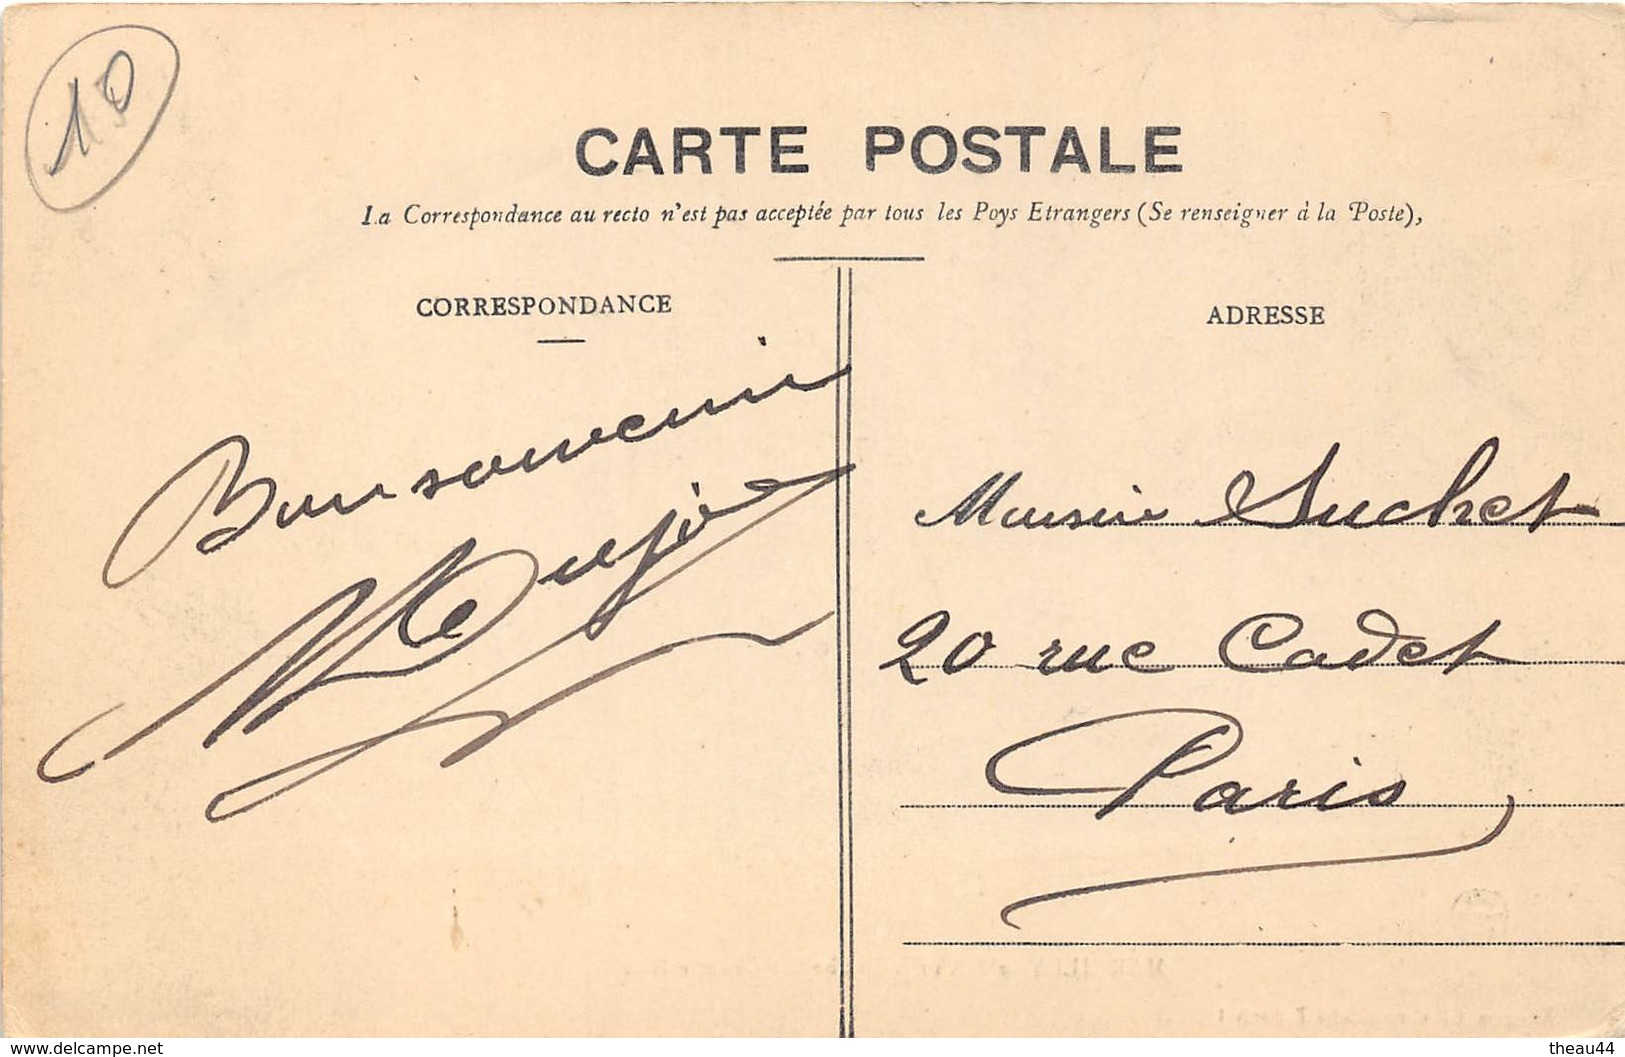 10
CARTE POSTALE
La Correspondance au recto n'est pas acceptée par tous les Pays Etrangers (Se renseigner à la Poste),
CORRESPONDANCE
ADRESSE
Bon souvenir
Monsieur Suchet
20 rue Cadet
Paris
www.delcampe.net
theau44